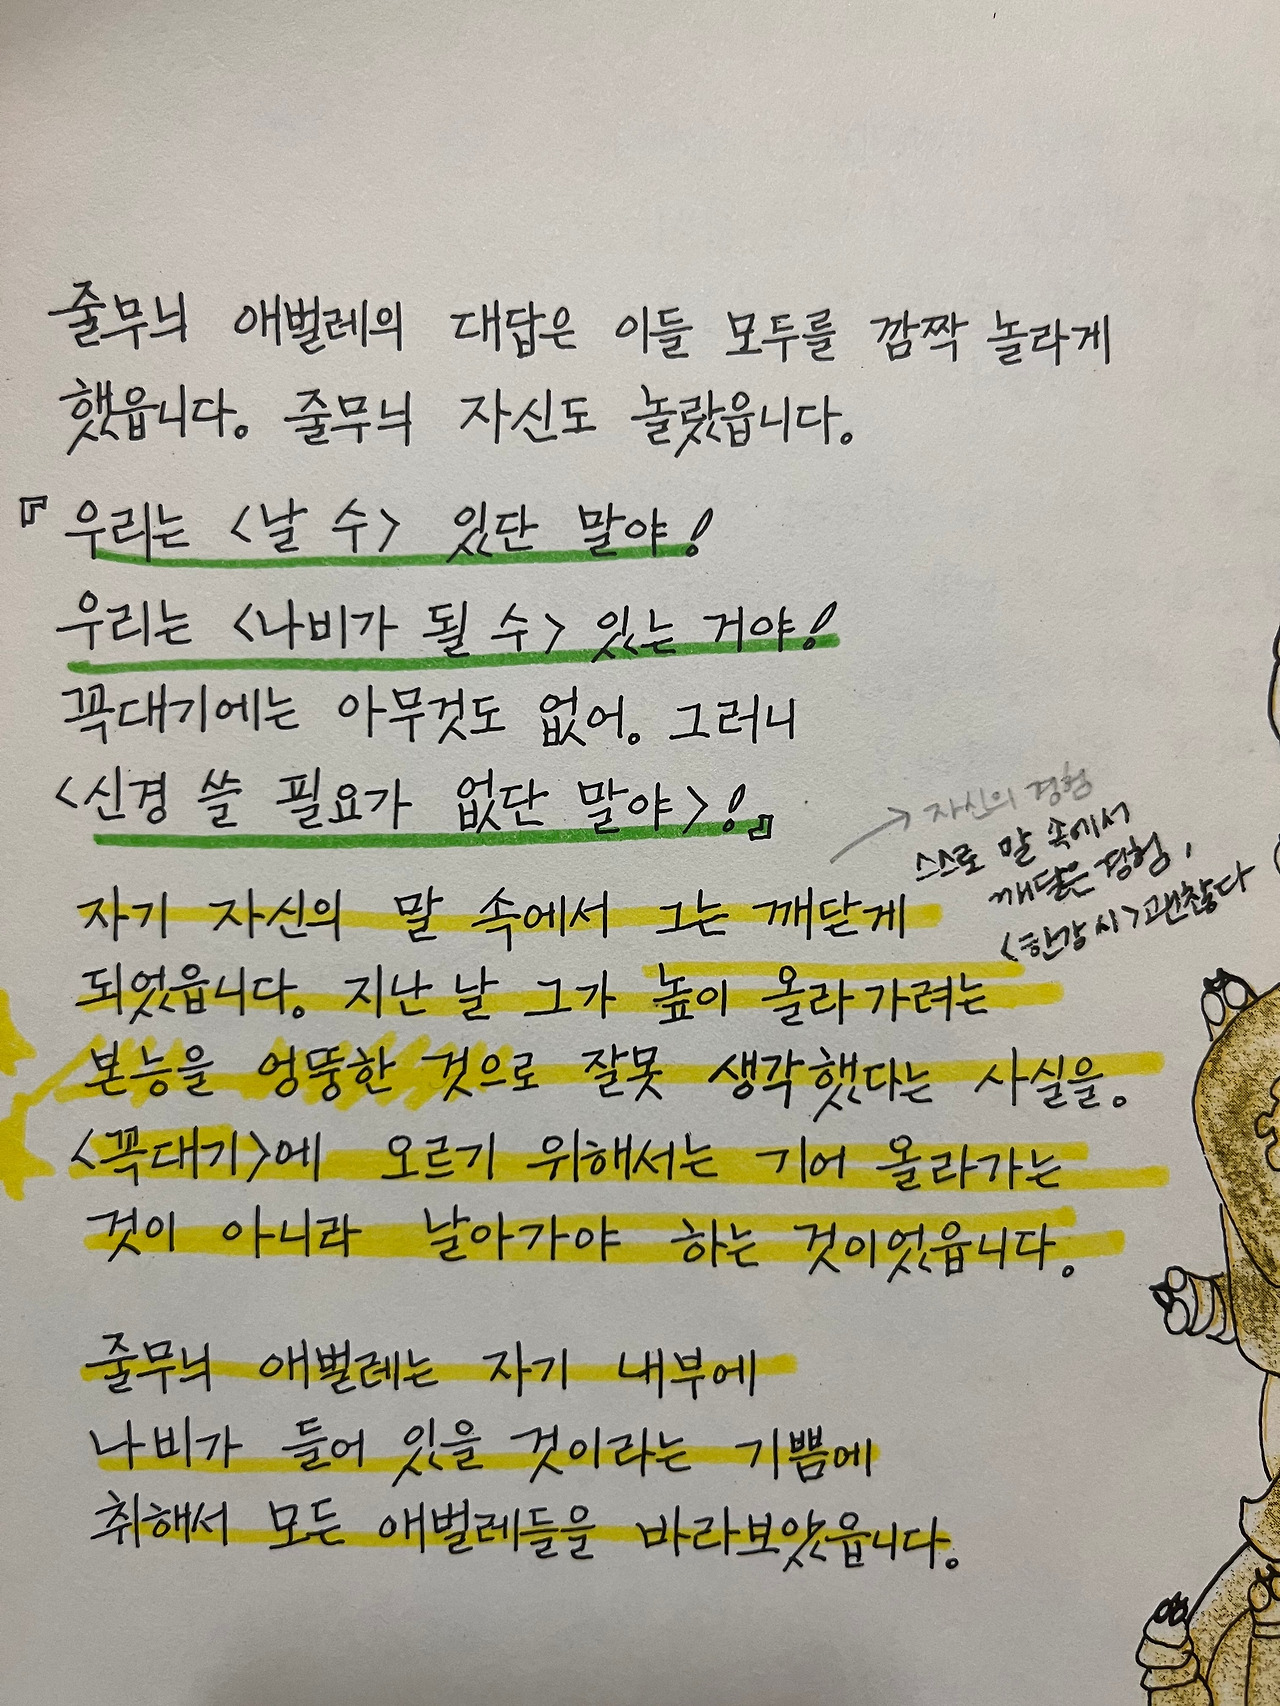 줄무늬 애벌레의 대답은 이들 모두를 깜짝 놀라게
했읍니다. 줄무늬 자신도 놀랐읍니다.
『우리는 <날 수> 있단 말야!
우리는 <나비가 될 수> 있는 거야!
꼭대기에는 아무것도 없어. 그러니
<신경 쓸 필요가 없단 말야>!』
→ 자신의 경험
스스로 말 속에서
깨달은 경험,
<한강 시> 괜찮다
자기 자신의 말 속에서 그는 깨닫게
되었읍니다. 지난 날 그가 높이 올라가려는
본능을 엉뚱한 것으로 잘못 생각했다는 사실을.
<꼭대기>에 오르기 위해서는 기어 올라가는
것이 아니라 날아가야 하는 것이었읍니다.
줄무늬 애벌레는 자기 내부에
나비가 들어 있을 것이라는 기쁨에
취해서 모든 애벌레들을 바라보았읍니다.